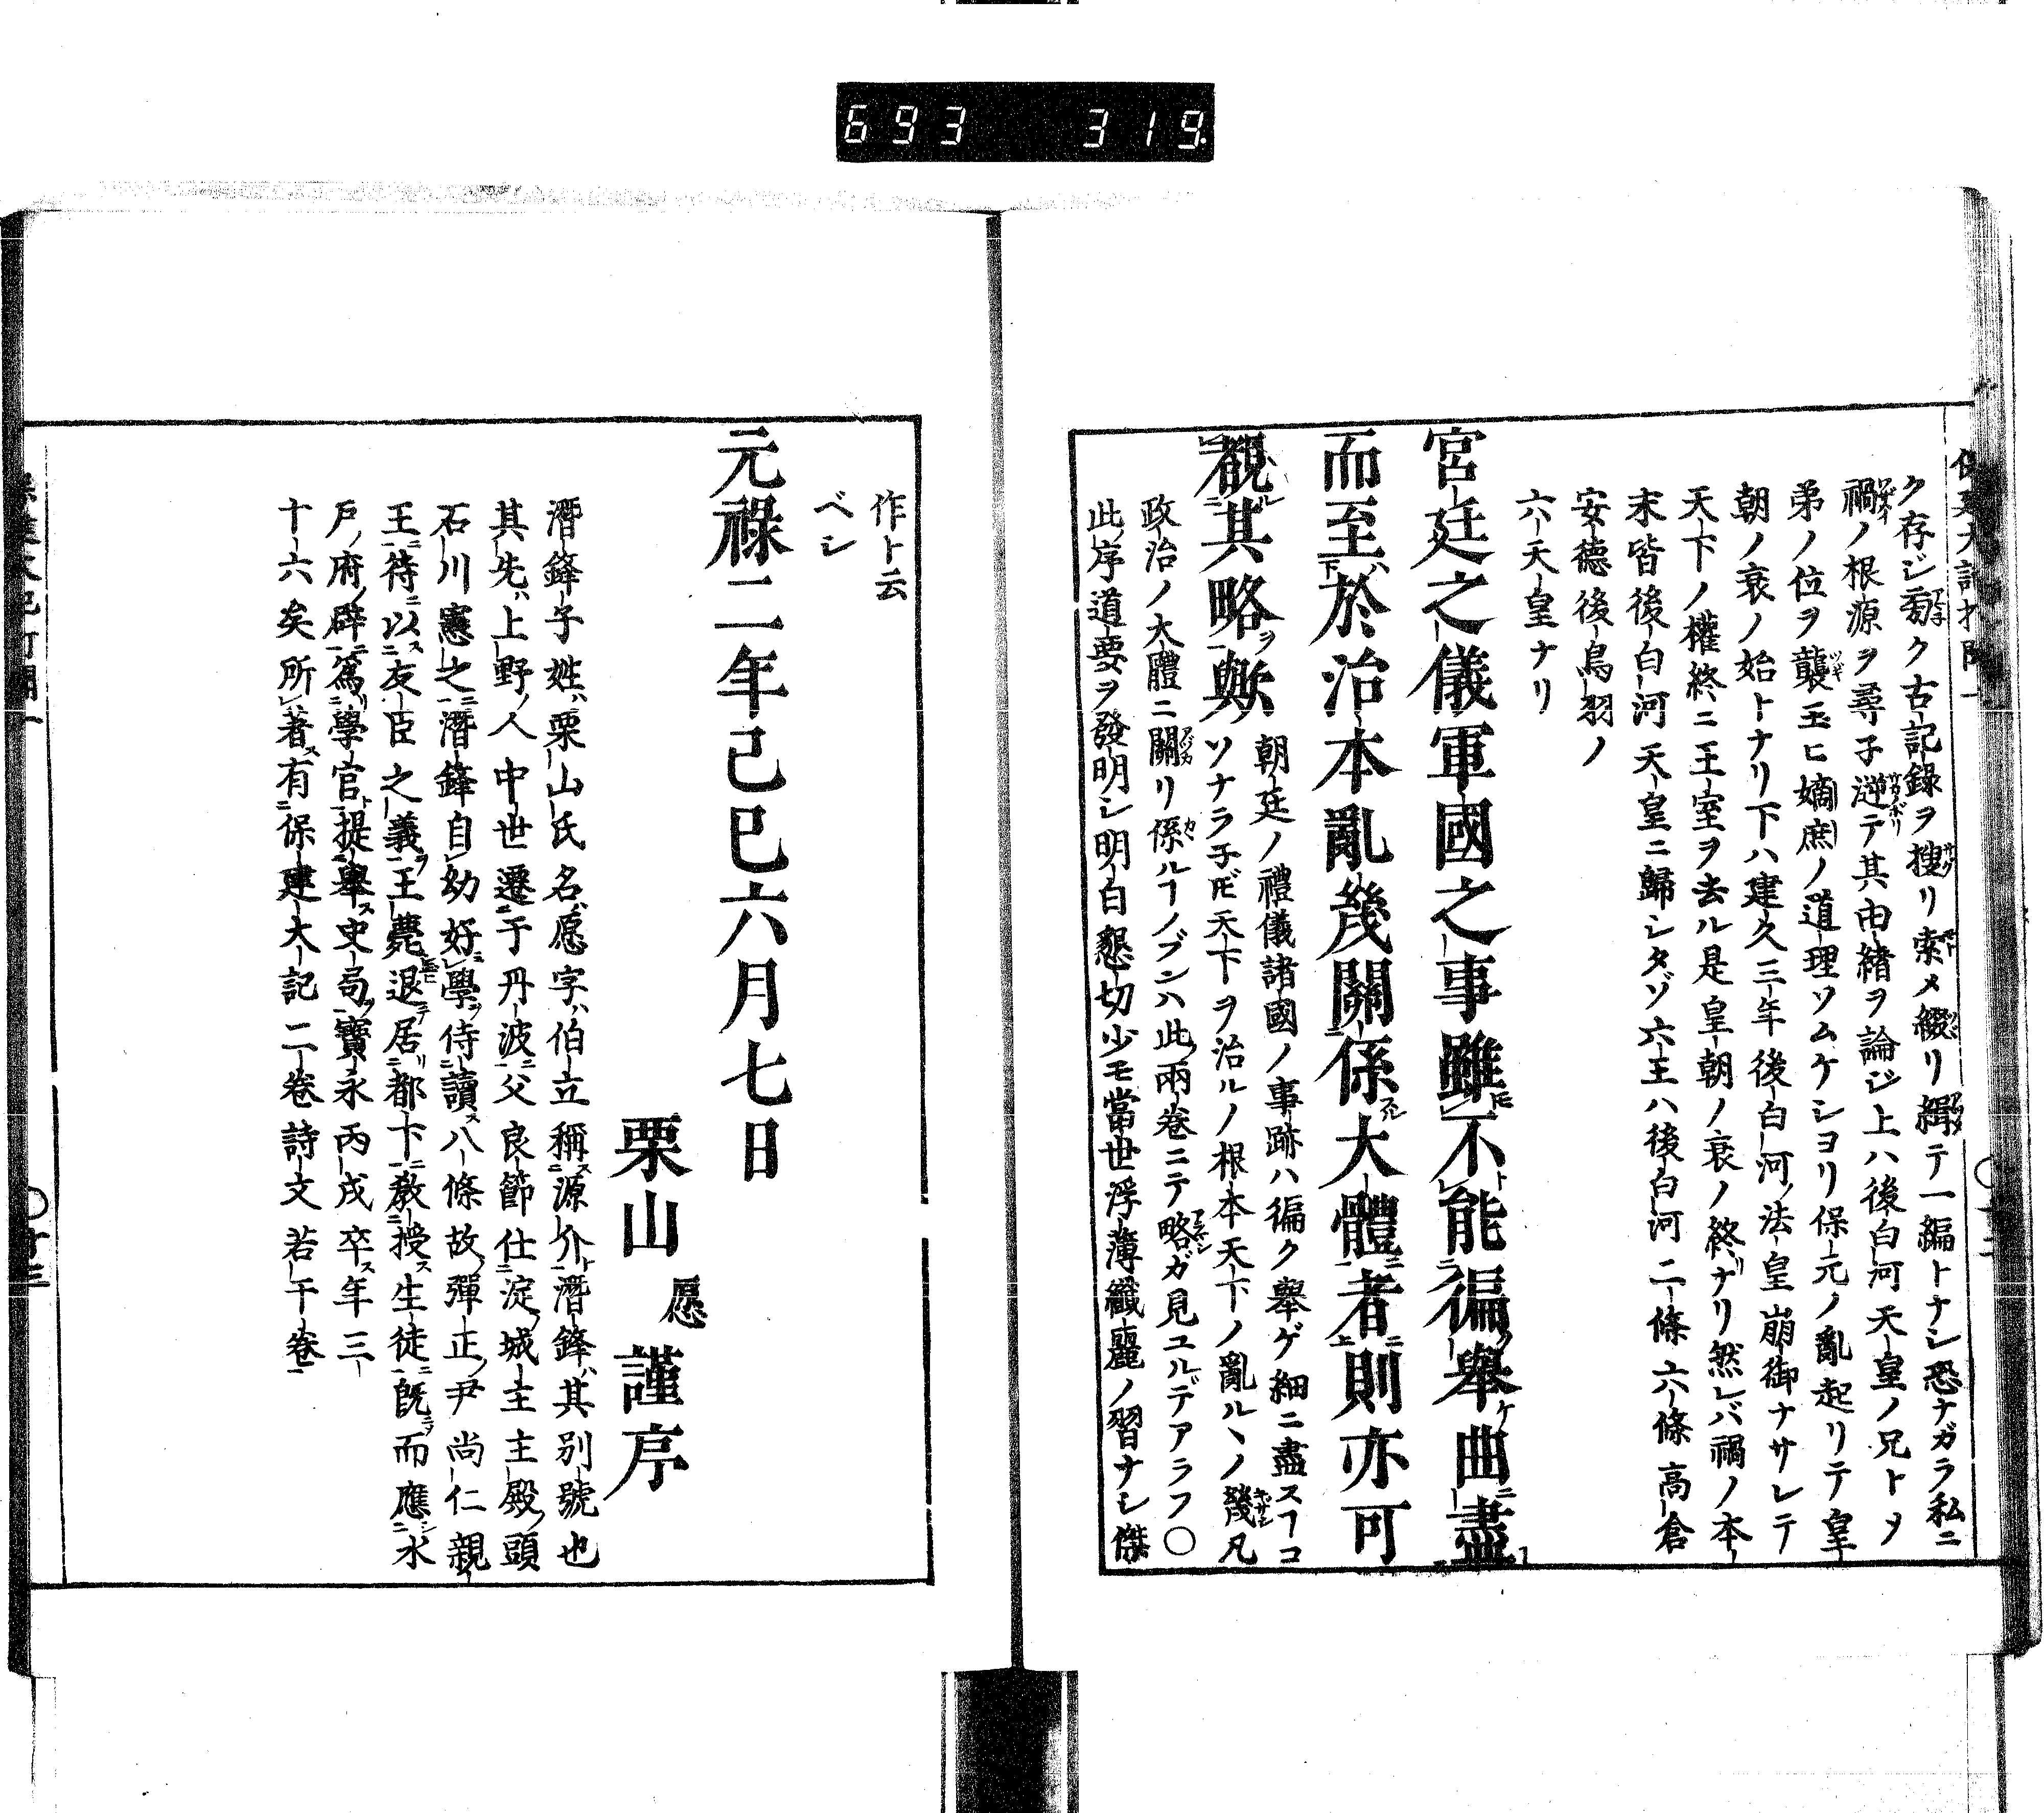 693 319
ク存ジ蒭ク古記録ヲ搜リ索メ綴リ緝テ一編トナシ恐ナガラ私ニ
禍ノ根源ヲ尋子遡テ其由緒ヲ論ジ上ハ後白河天皇ノ兄トヲ
弟ノ位ヲ襲玉ヒ嫡庶ノ道理ソムケシヨリ保元ノ亂起リテ皇
朝ノ衰ノ始トナリ下ハ建久三年後白河ノ法皇崩御ナサレテ
天下ノ權終ニ王室ヲ去ル是皇朝ノ衰ノ終ナリ然レバ禍ノ本
末皆後白河天皇ニ歸シタゾ六王ハ後白河二條六條高倉
安德後鳥羽ノ
六天皇ナリ
宮廷之儀軍國之事雖不能徧舉曲盡
而至於治本亂幾關係大體者則亦可
觀其略歟
朝廷ノ禮儀諸國ノ事跡ハ徧ク舉ゲ細ニ盡スヿコ
ソナラ子𪜈天下ヲ治ルノ根本天下ノ亂ルヽノ幾凡
政治ノ大體ニ關リ係ルヿノブンハ此兩卷ニテ略ガ見ユルデアラフ〇
此序道要ヲ發明シ明白懇切少モ當世浮薄纖麗ノ習ナシ傑
作ト云
ベシ
元祿二年己巳六月七日
栗山愿謹序
潛鋒子姓ハ栗山氏名ハ愿字ハ伯立稱ス源介ト潛鋒ハ其別號也
其先ハ上野ノ人中世遷于丹波ニ父良節仕淀ノ城主主殿ノ頭
石川憲之ニ潛鋒自幼好學ヲ侍讀ス八條故彈正ノ尹尚仁親
王ニ待ニ以ス友臣之義ヲ王薨退居都下ニ教授ス生徒ニ既ニシテ而應水
戶ノ府ノ辟ニ爲學官ト提舉ス史局ヲ寶永丙戌卒ス年三
十六矣所著ス有保建大記二卷詩文若干卷